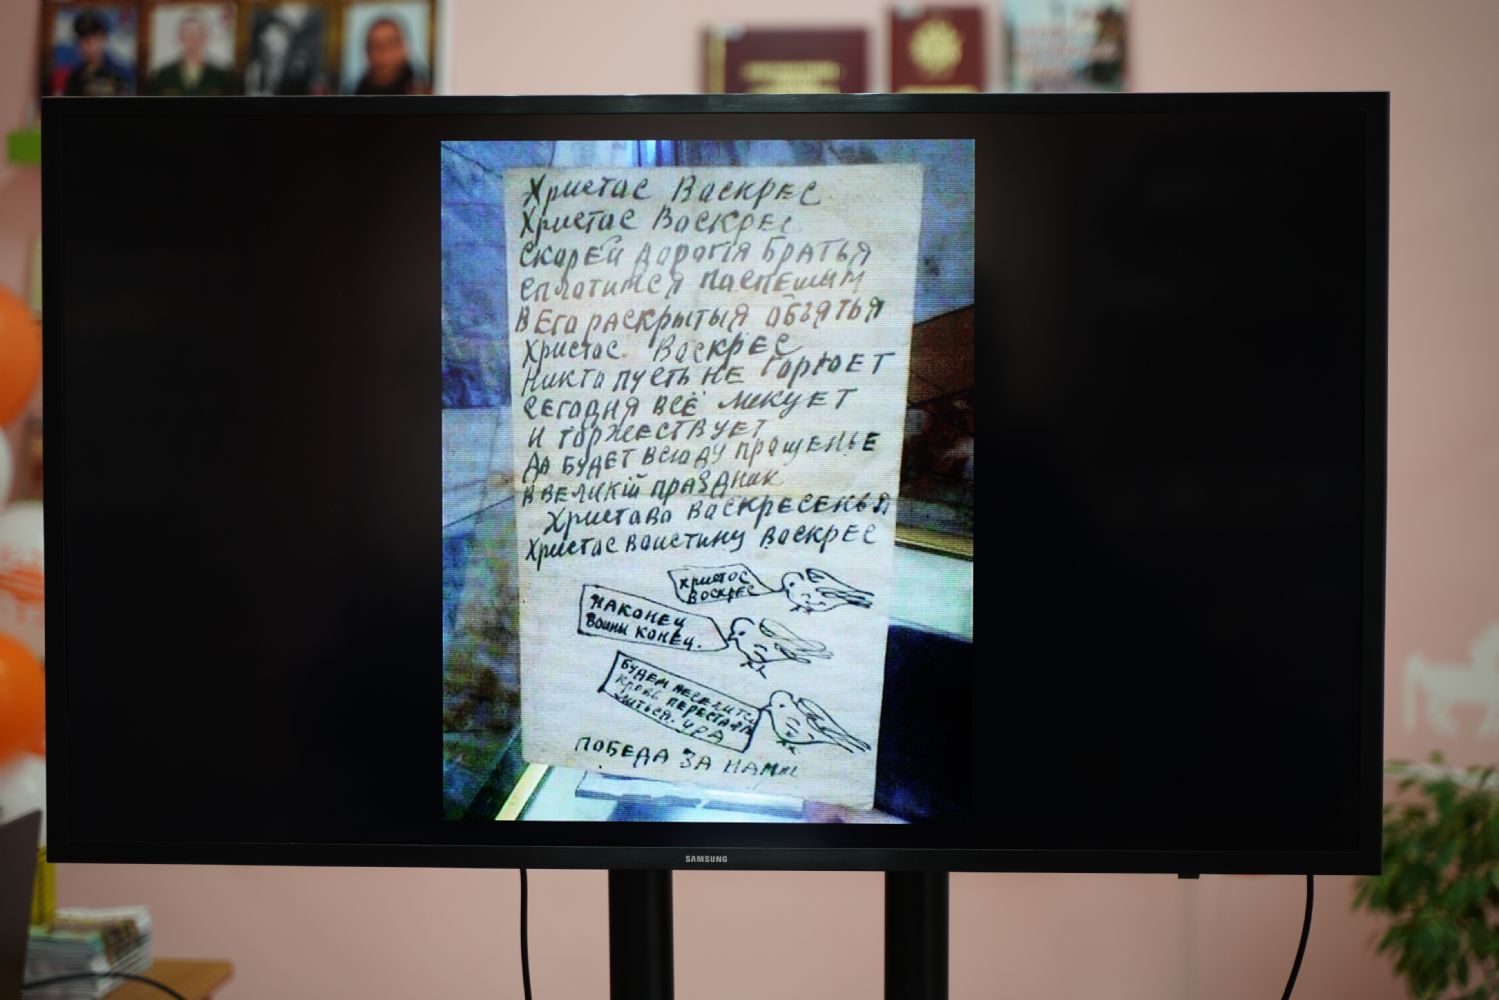 Христас Васкрес
Христас Васкрес
Скарей Дарогiя Братья
сплотимся паспешим
в Его раскрытыя абъятья
Христас Васкрес
Никта пусть не горюет
сегодня всё ликует
и таржествует
Да будет всюду прощенье
в великiй праздник
Христава Васкресенья
Христас ваистину васкрес
Христос
Воскрес
Наконец
Воины конец.
Будем
кровь перестала
литься. ура
Победа за нами
SAMSUNG